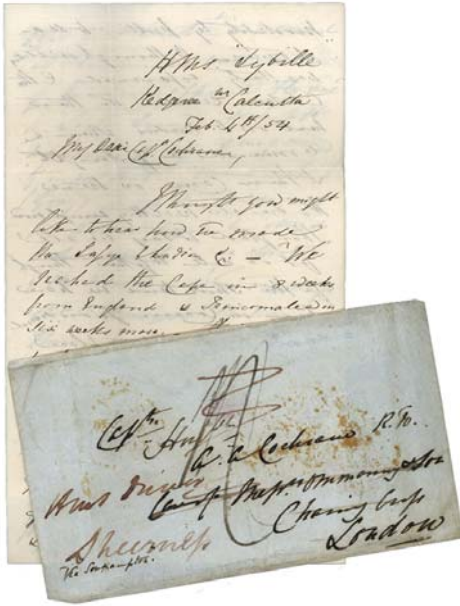 HMS "Sybille"
Kedgeree nr Calcutta
Feb. 4th/54
My Dear Capt. Cochrane,
I thought you might
like to hear how we made
the &c — We
reached the Cape in 8 weeks
from England & Trincomalee in
six weeks more.
Captn Honble
A. A. Cochrane R.N.
HMS Driver
Messrs Ommanney & Son
Charing Cross
Sheerness
London
Via Southampton.